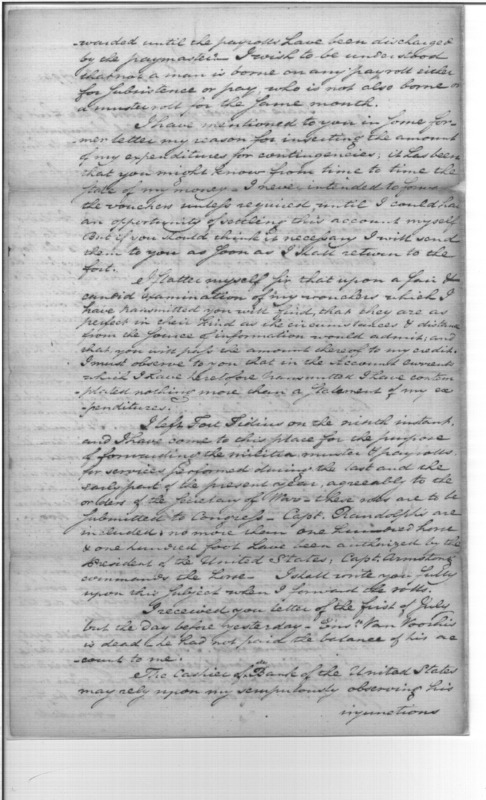 warded until the payrolls have been discharged
by the paymaster. I wish to be understood
that not a man is borne on any payroll either
for subsistence or pay, who is not also borne on
a muster roll for the same month.
I have mentioned to you in some for-
mer letter my reason for inserting the amount
of my expenditures for contingencies; it has been
that you might know from time to time the
state of my money - I never intended to forward
the vouchers unless required until I could have
an opportunity of settling this account myself
But if you should think it necessary I will send
them to you as soon as I shall return to the
fort.
I flatter myself Sir that upon a fair &
candid examination of my vouchers which I
have transmitted you will find, that they are as
perfect in their kind as the circumstances & distance
from the source of information would admit; and
that you will pass the amount thereof to my credit.
I must observe to you that in the accounts current
which I have heretofore transmitted I have contem
-plated nothing more than a statement of my ex
-penditures.
I left Fort Fidius on the ninth instant,
and I have come to this place for the purpose
of forwarding the militia muster & payrolls
for services performed during the last and the
early part of the present year, agreeably to the
orders of the Secretary of War - these rolls are to be
submitted to Congress - Capt. Randolph's are
included; no more than one hundred horse
& one hundred foot have been authorized by the
President of the United States; Capt. Armstrong
commands the horse - I shall write you fully
upon this subject when I forward the rolls.
I received your letter of the first of July
but the day before yesterday - Ensn. Van Voorhis
is dead; he had not paid the balance of his ac
-count to me.
The Cashier of the Bank of the United States
may rely upon my scrupulously observing his
injunctions